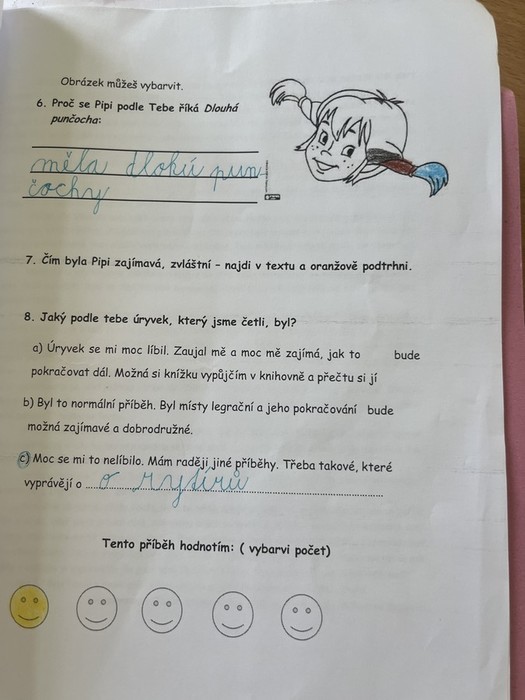 Obrázek můžeš vybarvit.
6. Proč se Pipi podle Tebe říká Dlouhá
punčocha:
měla dlohú pun
čochy
7. Čím byla Pipi zajímavá, zvláštní - najdi v textu a oranžově podtrhni.
8. Jaký podle tebe úryvek, který jsme četli, byl?
a) Úryvek se mi moc líbil. Zaujal mě a moc mě zajímá, jak to bude
pokračovat dál. Možná si knížku vypůjčím v knihovně a přečtu si jí
b) Byl to normální příběh. Byl místy legrační a jeho pokračování bude
možná zajímavé a dobrodružné.
c) Moc se mi to nelíbilo. Mám raději jiné příběhy. Třeba takové, které
vyprávějí o o rytirů
Tento příběh hodnotím: ( vybarvi počet)